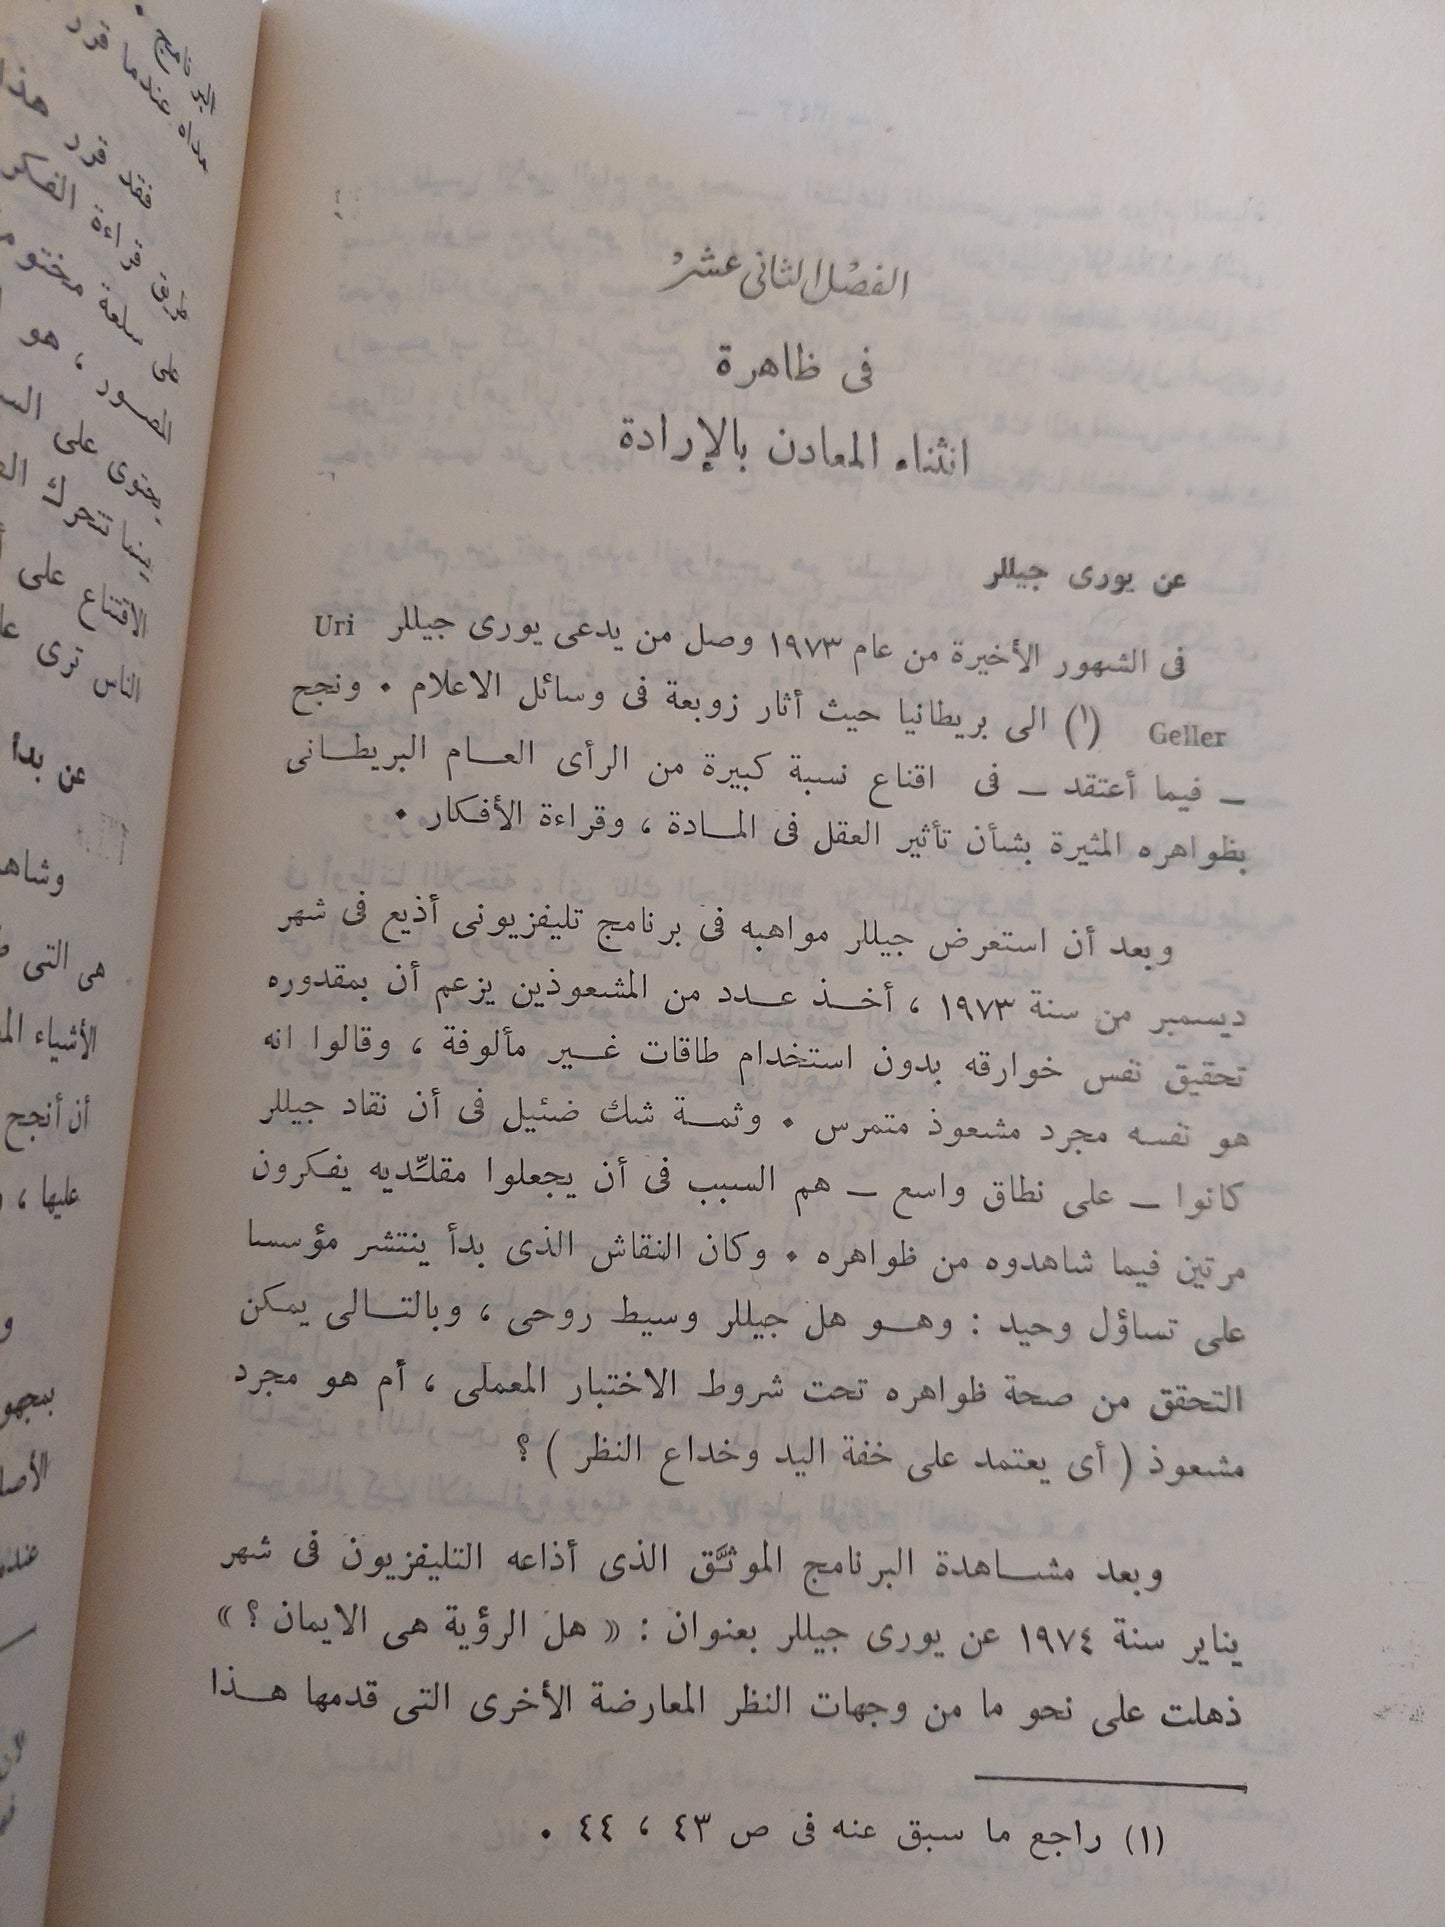 الفصل الثانى عشر
فى ظاهرة
انثناء المعادن بالإرادة
عن يورى جيللر
فى الشهور الأخيرة من عام ١٩٧٣ وصل من يدعى يورى جيللر Uri
Geller (١) الى بريطانيا حيث أثار زوبعة فى وسائل الاعلام . ونجح
ــ فيما أعتقد ــ فى اقناع نسبة كبيرة من الرأى العام البريطانى
بظواهره المثيرة بشأن تأثير العقل فى المادة ، وقراءة الأفكار .
وبعد أن استعرض جيللر مواهبه فى برنامج تليفزيونى أذيع فى شهر
ديسمبر من سنة ١٩٧٣ ، أخذ عدد من المشعوذين يزعم أن بمقدوره
تحقيق نفس خوارقه بدون استخدام طاقات غير مألوفة ، وقالوا انه
هو نفسه مجرد مشعوذ متمرس . وثمة شك ضئيل فى أن نقاد جيللر
كانوا ــ على نطاق واسع ــ هم السبب فى أن يجعلوا مقلِّديه يفكرون
مرتين فيما شاهدوه من ظواهره . وكان النقاش الذى بدأ ينتشر مؤسسا
على تساؤل وحيد : وهو هل جيللر وسيط روحى ، وبالتالى يمكن
التحقق من صحة ظواهره تحت شروط الاختبار المعملى ، أم هو مجرد
مشعوذ ( أى يعتمد على خفة اليد وخداع النظر ) ؟
وبعد مشاهدة البرنامج الموثَّق الذى أذاعه التليفزيون فى شهر
يناير سنة ١٩٧٤ عن يورى جيللر بعنوان : « هل الرؤية هى الايمان ؟ »
ذهلت على نحو ما من وجهات النظر المعارضة الأخرى التى قدمها هذا
(١) راجع ما سبق عنه فى ص ٤٣ ، ٤٤ .
البرنامج .
مداه عندما قرر
فقد قرر هذا
طريق قراءة الفكر
على سلعة
، هو
يحتوى على
بينما تتحرك
الاقتناع على
الناس ترى
عن بدأ
هى التى
الأشياء
أن أنجح
عليها ،